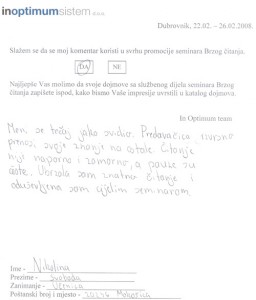 inoptimumsistem d.o.o.
Dubrovnik, 22.02. – 26.02.2008.
Slažem se da se moj komentar koristi u svrhu promocije seminara Brzog čitanja.
DA NE
Najljepše Vas molimo da svoje dojmove sa službenog dijela seminara Brzog
čitanja zapišete ispod, kako bismo Vaše impresije uvrstili u katalog dojmova.
In Optimum team
Meni se tečaj jako svidio. Predavačica izvrsno
prenosi svoje znanje na ostale. Čitanje
nije naporno i zamorno, a pauze su
česte. Ubrzala sam znatno čitanje i
oduševljena sam cijelim seminarom.
Ime - Nikolina
Prezime - Svoboda
Zanimanje - Učenica
Poštanski broj i mjesto -